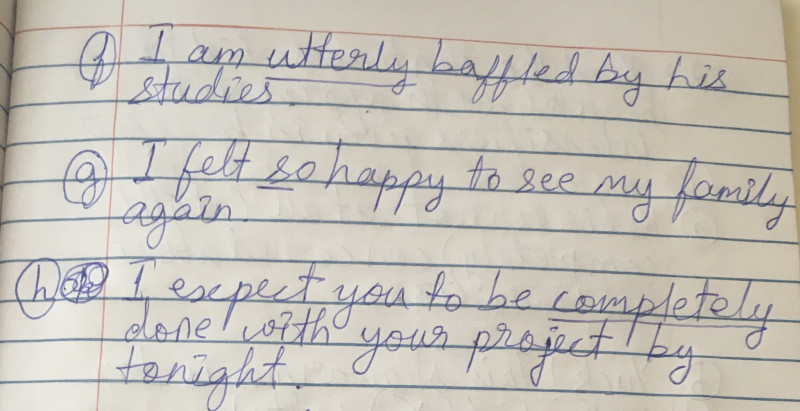 (f) I am utterly baffled by his
studies.
(g) I felt so happy to see my family
again.
(h) I expect you to be completely
done with your project by
tonight.